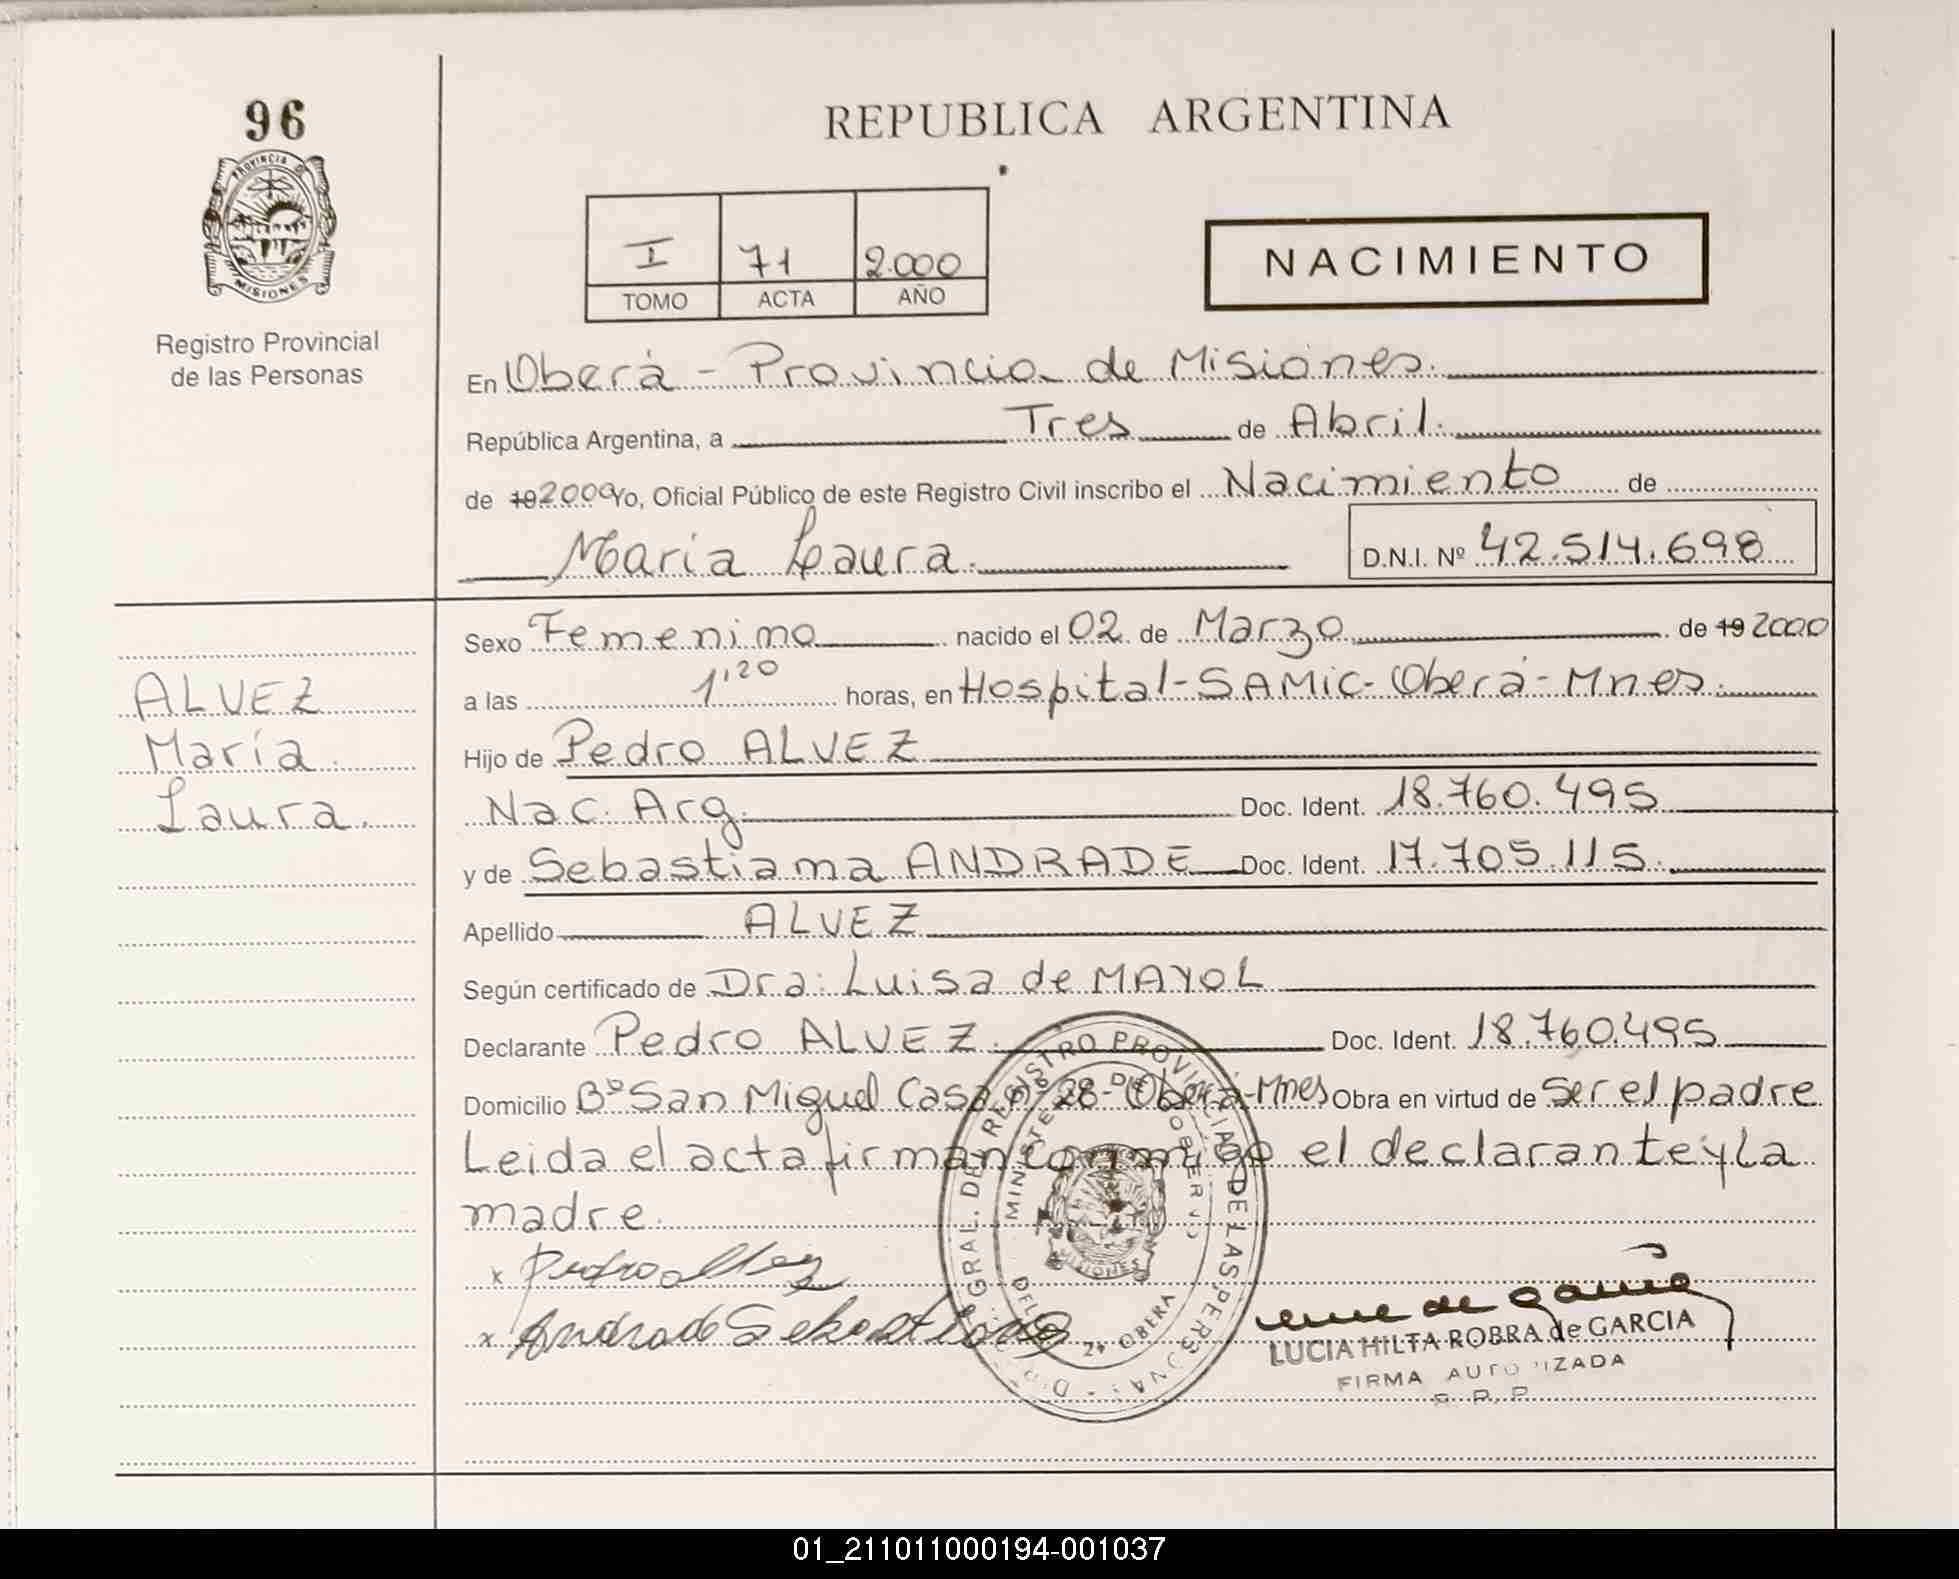 96
PROVINCIA DE
MISIONES
Registro Provincial
de las Personas
REPUBLICA ARGENTINA
I 71 2.000
TOMO ACTA AÑO
NACIMIENTO
En Oberá - Provincia de Misiones.
República Argentina, a Tres de Abril.
de 19 2000 Yo, Oficial Público de este Registro Civil inscribo el Nacimiento de
María Laura. D.N.I. Nº 42.514.698
Sexo Femenino nacido el 02 de Marzo de 19 2000
a las 1'20 horas, en Hospital-SAMIC-Oberá-Mnes.
Hijo de Pedro ALVEZ
Nac. Arg. Doc. Ident. 18.760.495
y de Sebastiana ANDRADE Doc. Ident. 17.705.115.
Apellido ALVEZ
Según certificado de Dra: Luisa de MAYOL
Declarante Pedro ALVEZ. Doc. Ident. 18.760.495
Domicilio Bº San Miguel Casa Nº 28- Oberá-Mnes Obra en virtud de Ser el padre
Leida el acta firman conmigo el declarante y la
madre.
ALVEZ
María
Laura.
x Pedro Alvez
x Andrade Sebastiana
REGISTRO PROVINCIAL DE LAS PERSONAS
MINISTERIO DE GOBIERNO
OBERA
MISIONES
LUCIA HILTA ROBRA de GARCIA
FIRMA AUTORIZADA
R. P. P.
01_211011000194-001037